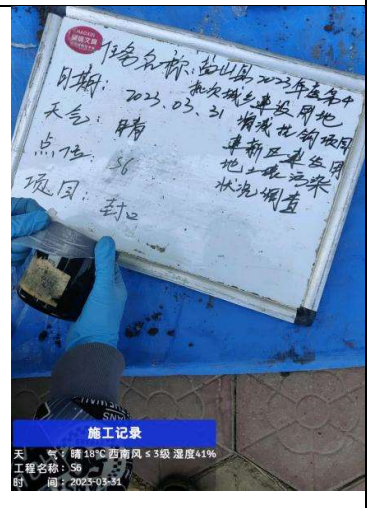 任务名称: 盐山县2023年度第4
批次城乡建设用地
增减挂钩项目
建新区建设用
地土壤污染
状况调查
日期: 2023.03.31
天气: 晴
点位: S6
项目: 封口
施工记录
天 气: 晴 18℃ 西南风 ≤ 3级 湿度41%
工程名称: S6
时 间: 2023-03-31